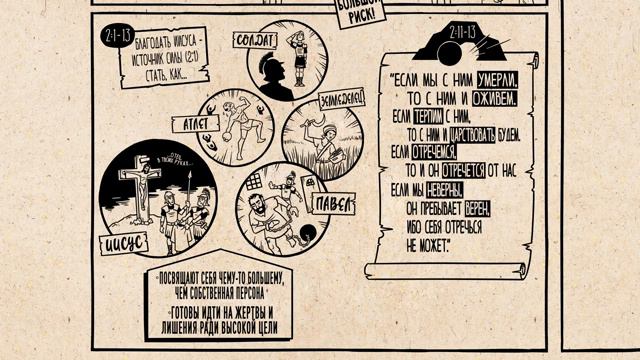 БОЛЬШОЙ
РИСК!
2:1-13
БЛАГОДАТЬ ИИСУСА -
ИСТОЧНИК СИЛЫ (2:1)
СТАТЬ, КАК...
СОЛДАТ
ЗЕМЛЕДЕЛЕЦ
АТЛЕТ
...ОТЕЦ,
В ТВОИ РУКИ...
ИИСУС
ПАВЕЛ
•ПОСВЯЩАЮТ СЕБЯ ЧЕМУ-ТО БОЛЬШЕМУ,
ЧЕМ СОБСТВЕННАЯ ПЕРСОНА
•ГОТОВЫ ИДТИ НА ЖЕРТВЫ И
ЛИШЕНИЯ РАДИ ВЫСОКОЙ ЦЕЛИ
2:11-13
"ЕСЛИ МЫ С НИМ УМЕРЛИ,
ТО С НИМ И ОЖИВЕМ.
ЕСЛИ ТЕРПИМ С НИМ,
ТО С НИМ И ЦАРСТВОВАТЬ БУДЕМ.
ЕСЛИ ОТРЕЧЕМСЯ,
ТО И ОН ОТРЕЧЕТСЯ ОТ НАС
ЕСЛИ МЫ НЕВЕРНЫ,
ОН ПРЕБЫВАЕТ ВЕРЕН,
ИБО СЕБЯ ОТРЕЧЬСЯ
НЕ МОЖЕТ."